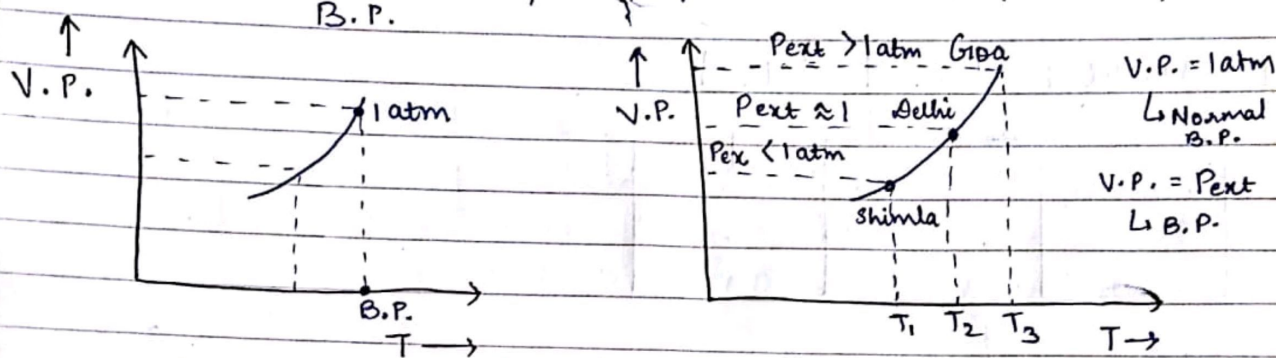 B.P.
V.P.
1 atm
B.P.
T
V.P.
Pext >1atm Goa
Pext ≈1 Delhi
Pex <1atm
Shimla
T1 T2 T3
T
V.P. = 1atm
↳ Normal
B.P.
V.P. = Pext
↳ B.P.